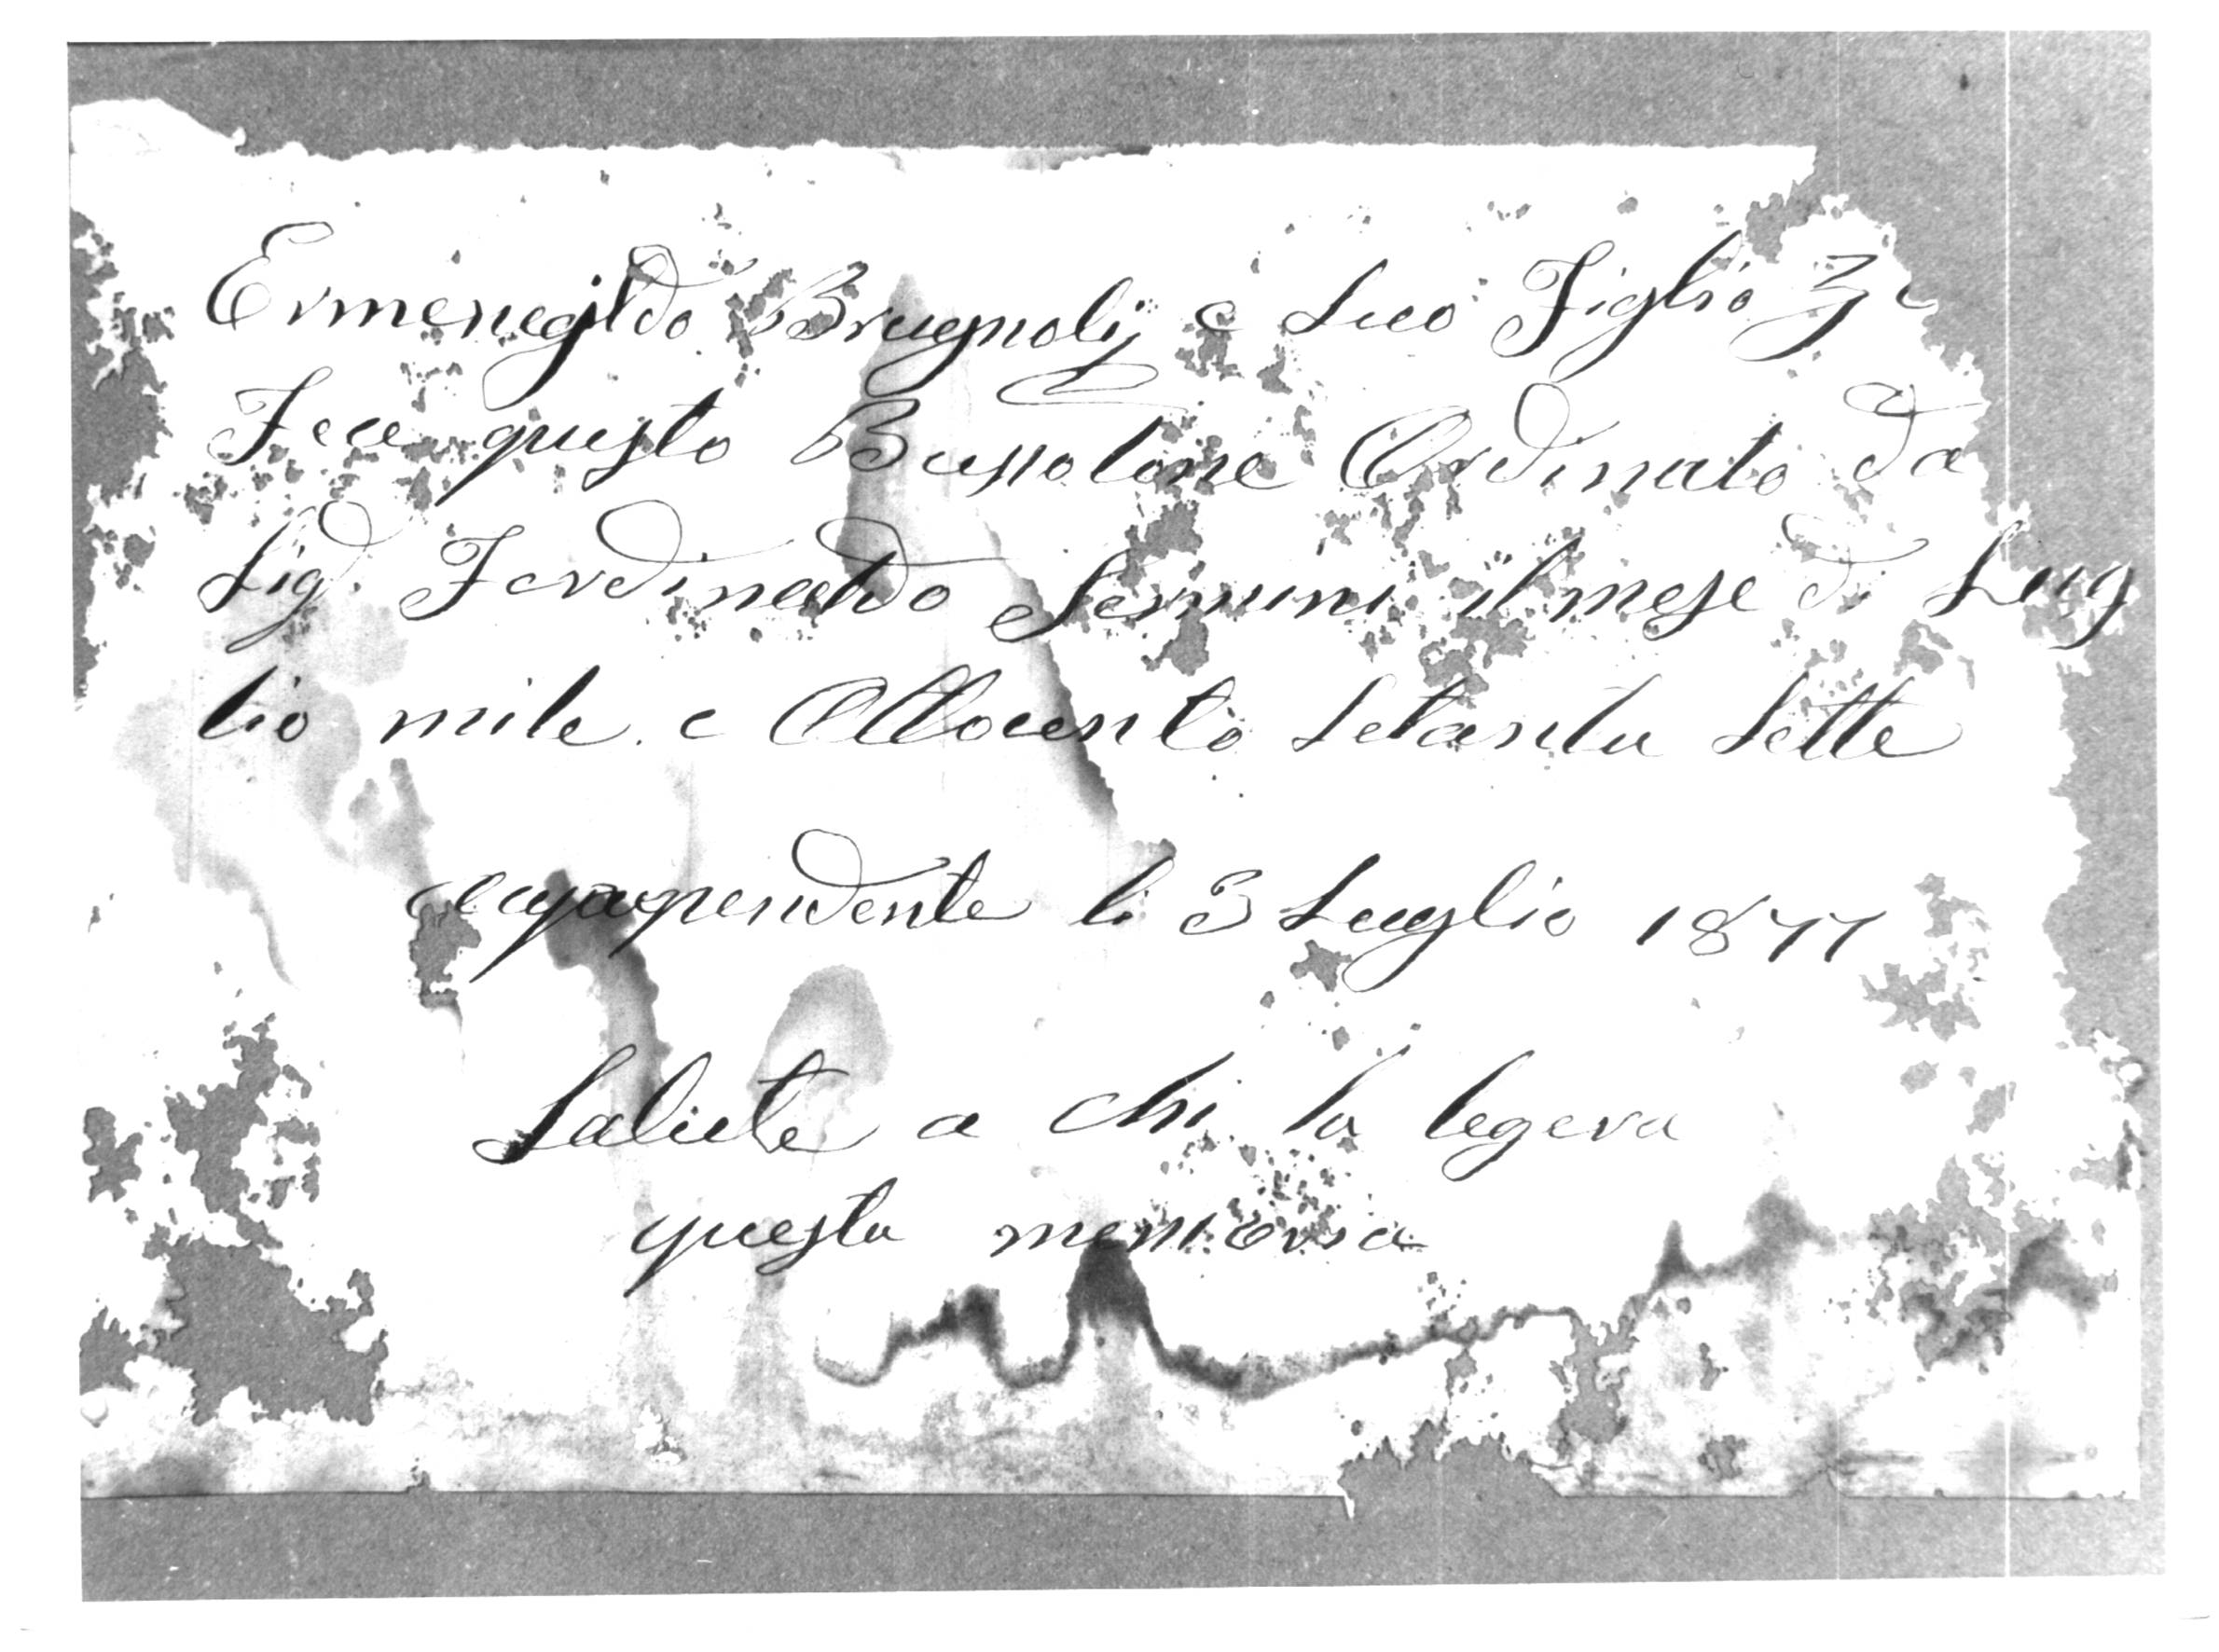 Ermenegildo Brugnoli e Suo Figlio
Fece questo Bussolone Ordinato da
Sigr. Ferdinando Sernini il mese di Lug
lio mile e Ottocento Setanta Sette
acquapendente li 3 Luglio 1877
Saliute a chi la legera
questa memoria